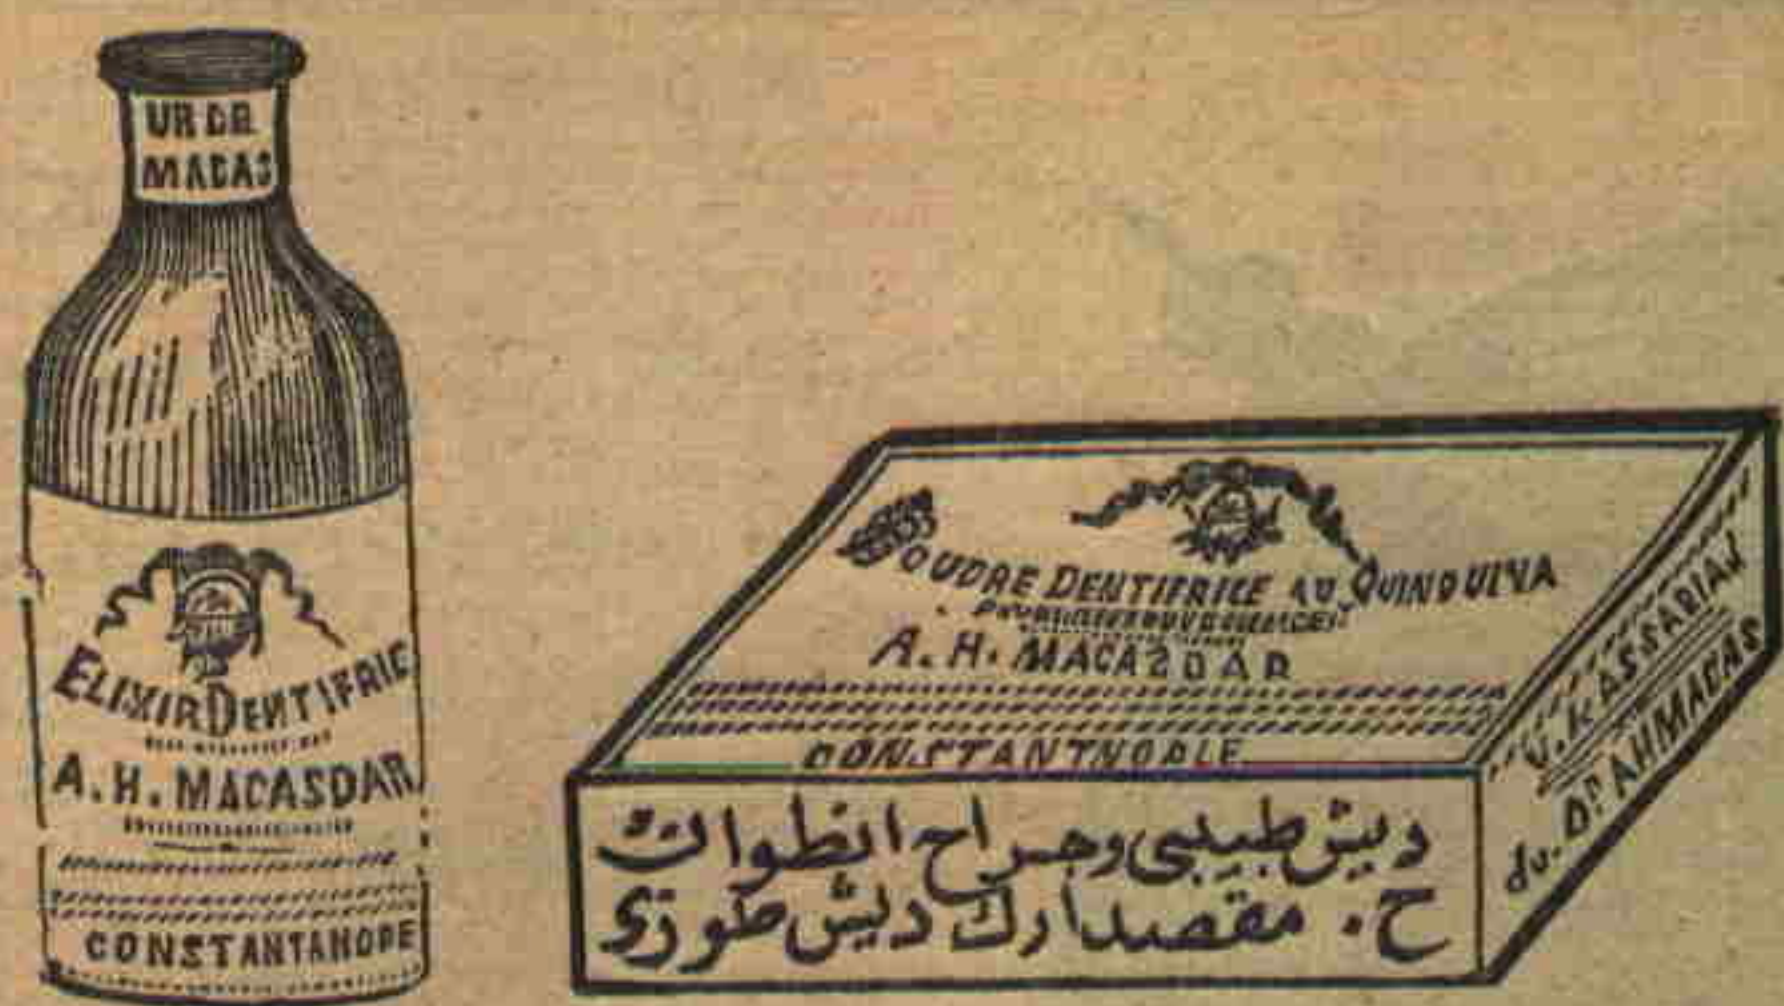 UR DR
MACAS
ELIXIR DENTIFRIC
A. H. MACASDAR
CONSTANTANOPE
POUDRE DENTIFRICE AU QUINQUINA
A. H. MACASDAR
CONSTANTNOPLE
V. KASSARIAN
du. Dr. AHMACAS
دیش طبیبی وجراح انطوان
ح. مقصدارك دیش طوزی